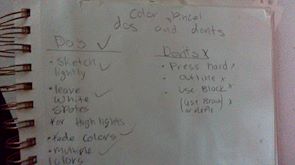 Color Pincel
dos and donts
Dos ✓
• Sketch
lightly ✓
• leave
White ✓
SPotes
For Highlights
• fade Colors ✓
• Multiple ✓
Colors
Donts X
• Press hard x
• Outline x
• Use Black x
(Use Brown)
or